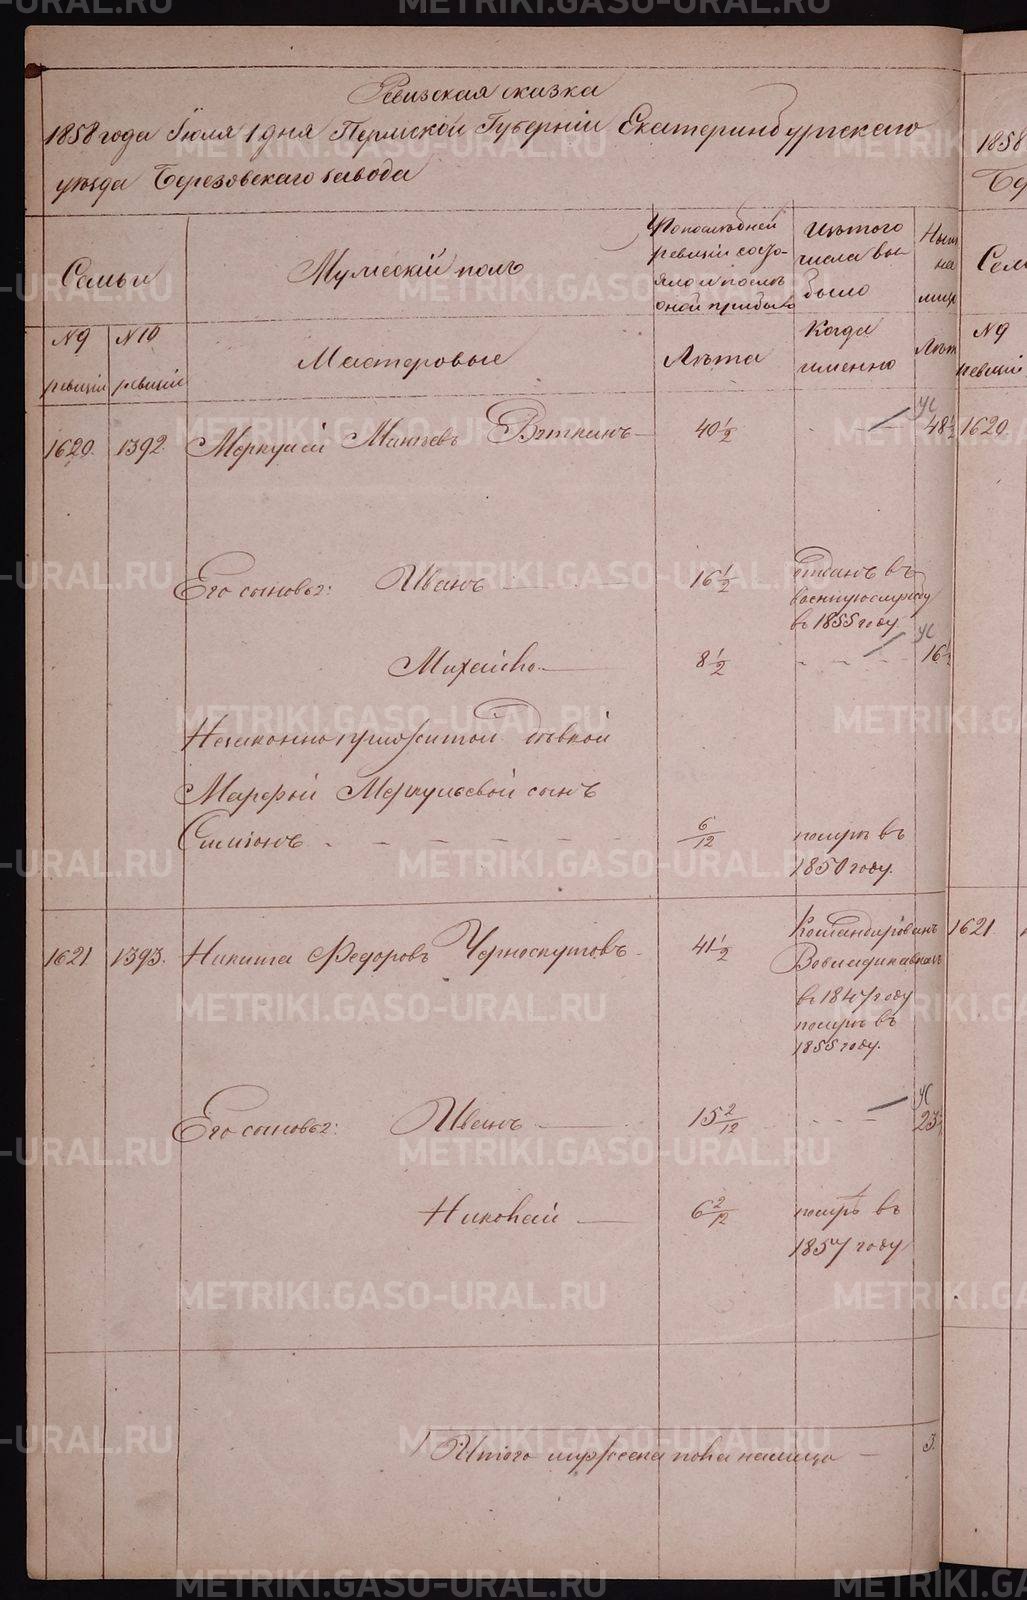 Ревизская сказка
1858 года Іюля 1 дня Пермской Губерніи Екатеринбургскаго
уѣзда Березовскаго завода
Семьи
Мужескій полъ
По послѣдней
ревизіи состо-
яло и послѣ
оной прибыло
Изъ того
числа вы-
было
Нын
на
лиц
№ 9
ревизіи
№ 10
ревизіи
Мастеровые
Лѣта
Когда
именно
Лѣт
1620.
1392.
Меркулій Макѣевъ Вяткинъ
40 1/2
48 1/2
Его сыновья: Иванъ
16 1/2
отданъ въ
военную службу
въ 1855 году
Михайло
8 1/2
16 1/2
Незаконно прижитой дѣвкой
Марфой Меркульевой сынъ
Симіонъ
6/12
померъ въ
1850 году.
1621
1393.
Никита Федоровъ Черноскутовъ
41 1/2
Командированъ
Во Владикавказъ
въ 1847 году
померъ въ
1855 году.
Его сыновья: Иванъ
15 2/12
23
Николай
6 2/12
померъ въ
1857 году
Итого мужеска пола налицо
3.
1858
Бе
Сем
№ 9
ревизіи
1620
1621
METRIKI.GASO-URAL.RU